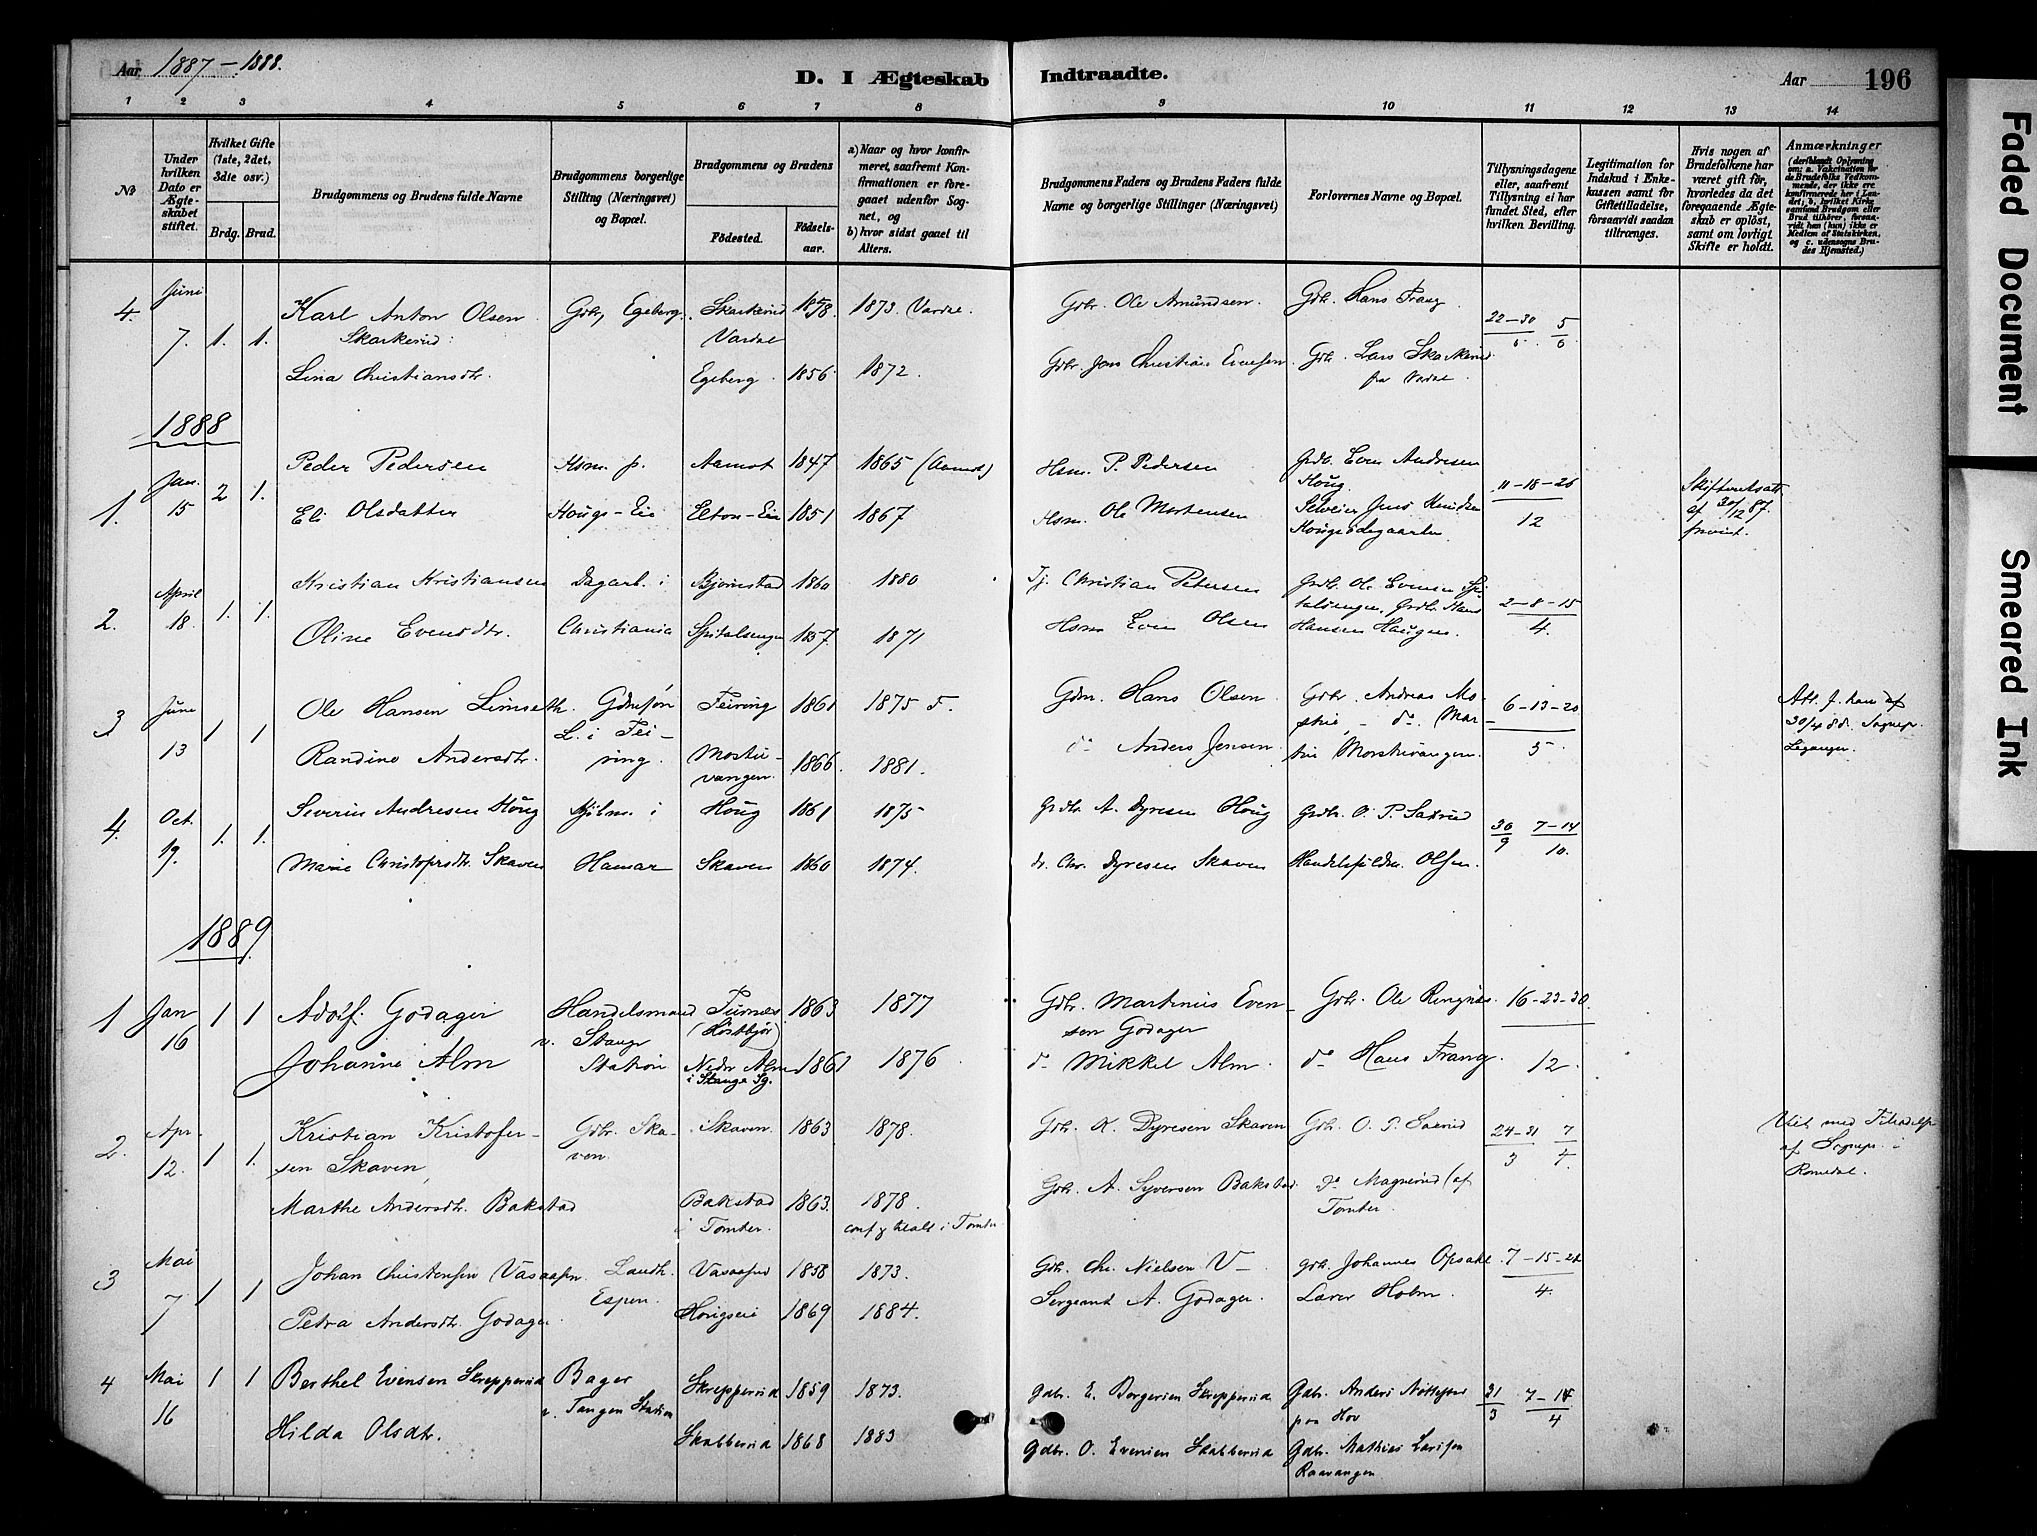 Aar 1887 – 1888.
D. I Ægteskab Indtraadte.
Aar 196
1 2 3 4 5 6 7 8 9 10 11 12 13 14
No
Under hvilken Dato er Ægteskabet stiftet.
Hvilket Gifte (1ste, 2det, 3die osv.)
Brdg. Brud.
Brudgommens og Brudens fulde Navne
Brudgommens borgerlige Stilling (Næringsvei) og Bopæl.
Brudgommens og Brudens
Födested. Födselsaar.
a) Naar og hvor konfirmeret, saafremt Konfirmationen er foregaaet udenfor Sognet, og
b) hvor sidst gaaet til Alters.
Brudgommens Faders og Brudens Faders fulde Navne og borgerlige Stillinger (Næringsvei)
Forlovernes Navne og Bopæl.
Tillysningsdagene eller, saafremt Tillysning ei har fundet Sted, efter hvilken Bevilling.
Legitimation for Indskud i Enkekassen samt for Giftetilladelse, forsaavidt saadan tiltrænges.
Hvis nogen af Brudefolkene har været gift för, hvorledes da det foregaaende Ægteskab er oplöst, samt om lovligt Skifte er holdt.
Anmærkninger
4. Juni 7. 1. 1. Karl Anton Olsen Skarkerud: Gdbr, Egeberg. Skarkerud Vardal 1858. 1873. Vardal. Gdbr. Ole Amundsen. Gdbr. Hans Frang 22–30 5/6
Lina Christiansdtr. Egeberg. 1856 1872. Gdbr. Jens Christian Evensen. Gdbr. Lars Skarkerud fra Vardal.
1888
1. Jan. 15 2 1. Peder Pedersen Hsm. p. Aamot 1847 1865 (Aamot) Hsm. P. Pedersen Grdb. Even Andresen Houg 11–18–26 12
Eli Olsdatter Hougs-Eie Elton-Eie 1851 1867 Hsm. Ole Mortensen Selveier Jens Knudsen Hougsödegaarden. Skifteretsatt. af 30/12 87.
2. April 18. 1. 1. Kristian Kristiansen Dagarb. i Bjørnstad 1860 1880 Tj. Christian Petersen Grdb. Ole Evensen Spitalsengen. Grdbr. Hans 2–8–15 4.
Oline Evensdtr. Christiania Spitalsengen 1857. 1871 Hsm Even Olsen Hansen Haugen.
3 Juni 13 1 1 Ole Hansen Limseth. Gdmsøn L. i Feiring. Feiring 1861 1875 F. Gdm. Hans Olsen. Gdbr. Andreas 6–13–20 5
Randine Andersdtr. Mostuvangen. 1866. 1881. do Anders Jensen. Morstuvangen.
4. Oct. 19. 1. 1. Severin Andresen Houg Kjøbm. i Houg 1861 1875 Grdbr. A. Dyresen Houg Grdbr. O. P. Saxrud 30/9 7–14 10.
Marie Christofersdtr. Skaven Hamar Skaven 1860 1874. do. Chr. Dyresen Skaven Handelsfuldm. Olsen.
1889
1 Jan 16 1 1 Adolf Godager Handelsmand v. Stange Station Furnes (Hostbjør) 1863 1877 Gdbr. Martinus Evensen Godager Gdbr. Ole Ringnes. 16–23–30. 12
Johanne Alm Nedre Alm i Stange Sg. 1861 1876 do Mikkel Alm. do Hans Frang.
2. Apr. 12. 1 1. Kristian Kristofersen Skaven Gdbr. Skaven. Skaven. 1863 1878. Gdbr. K. Dyresen Skaven Gdbr. O. P. Saxrud 24–31 3 7/4.
Marthe Andersdtr. Bakstad Bakstad i Tomter. 1863. 1878. Gdbr. A. Syversen Bakstad. do Magnerud (af Tomter. af Sognepr. i Romedal.
3 Mai 7 1 1 Johan Christensen Vasaasen. Landh. Espen. Vasaasen 1858 1873. Gdb. Chr. Nielsen V– gdb. Johannes Opsahl. 7–15–21 4.
Petra Andersdtr. Godager. Hougseie 1869 1884. Sergeant A. Godager. Lærer Holm.
4 Mai 16 1 1 Berthel Evensen Skrepperud Bager v. Tangen Station Skrepperud 1859 1873. Gdbr. E. Borgersen Skrepperud Gdbr. Anders paa Hov 31/3 7–14 4
Hilda Olsdtr. Skabberud 1868 1883 Gdbr. O. Evensen Skabberud Gdbr. Mathias Larssen Raavangen
Faded Document
Smeared Ink